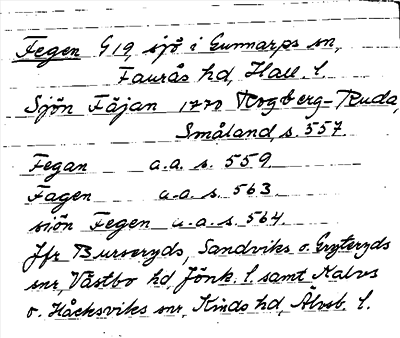 Fegen G19, sjö i Gunnarps sn,
Faurås hd, Hall. l.
Sjön Fäjan 1770 Rogberg-Ruda,
Småland, s. 557.
Fegan a.a. s. 559
Fagen a.a. s. 563
siön Fegen a.a. s. 564.
Jfr Burseryds, Sandviks o. Gryteryds
snr, Västbo hd Jönk. l. samt Kalvs
o. Håcksviks snr, Kinds hd, Älvsb. l.